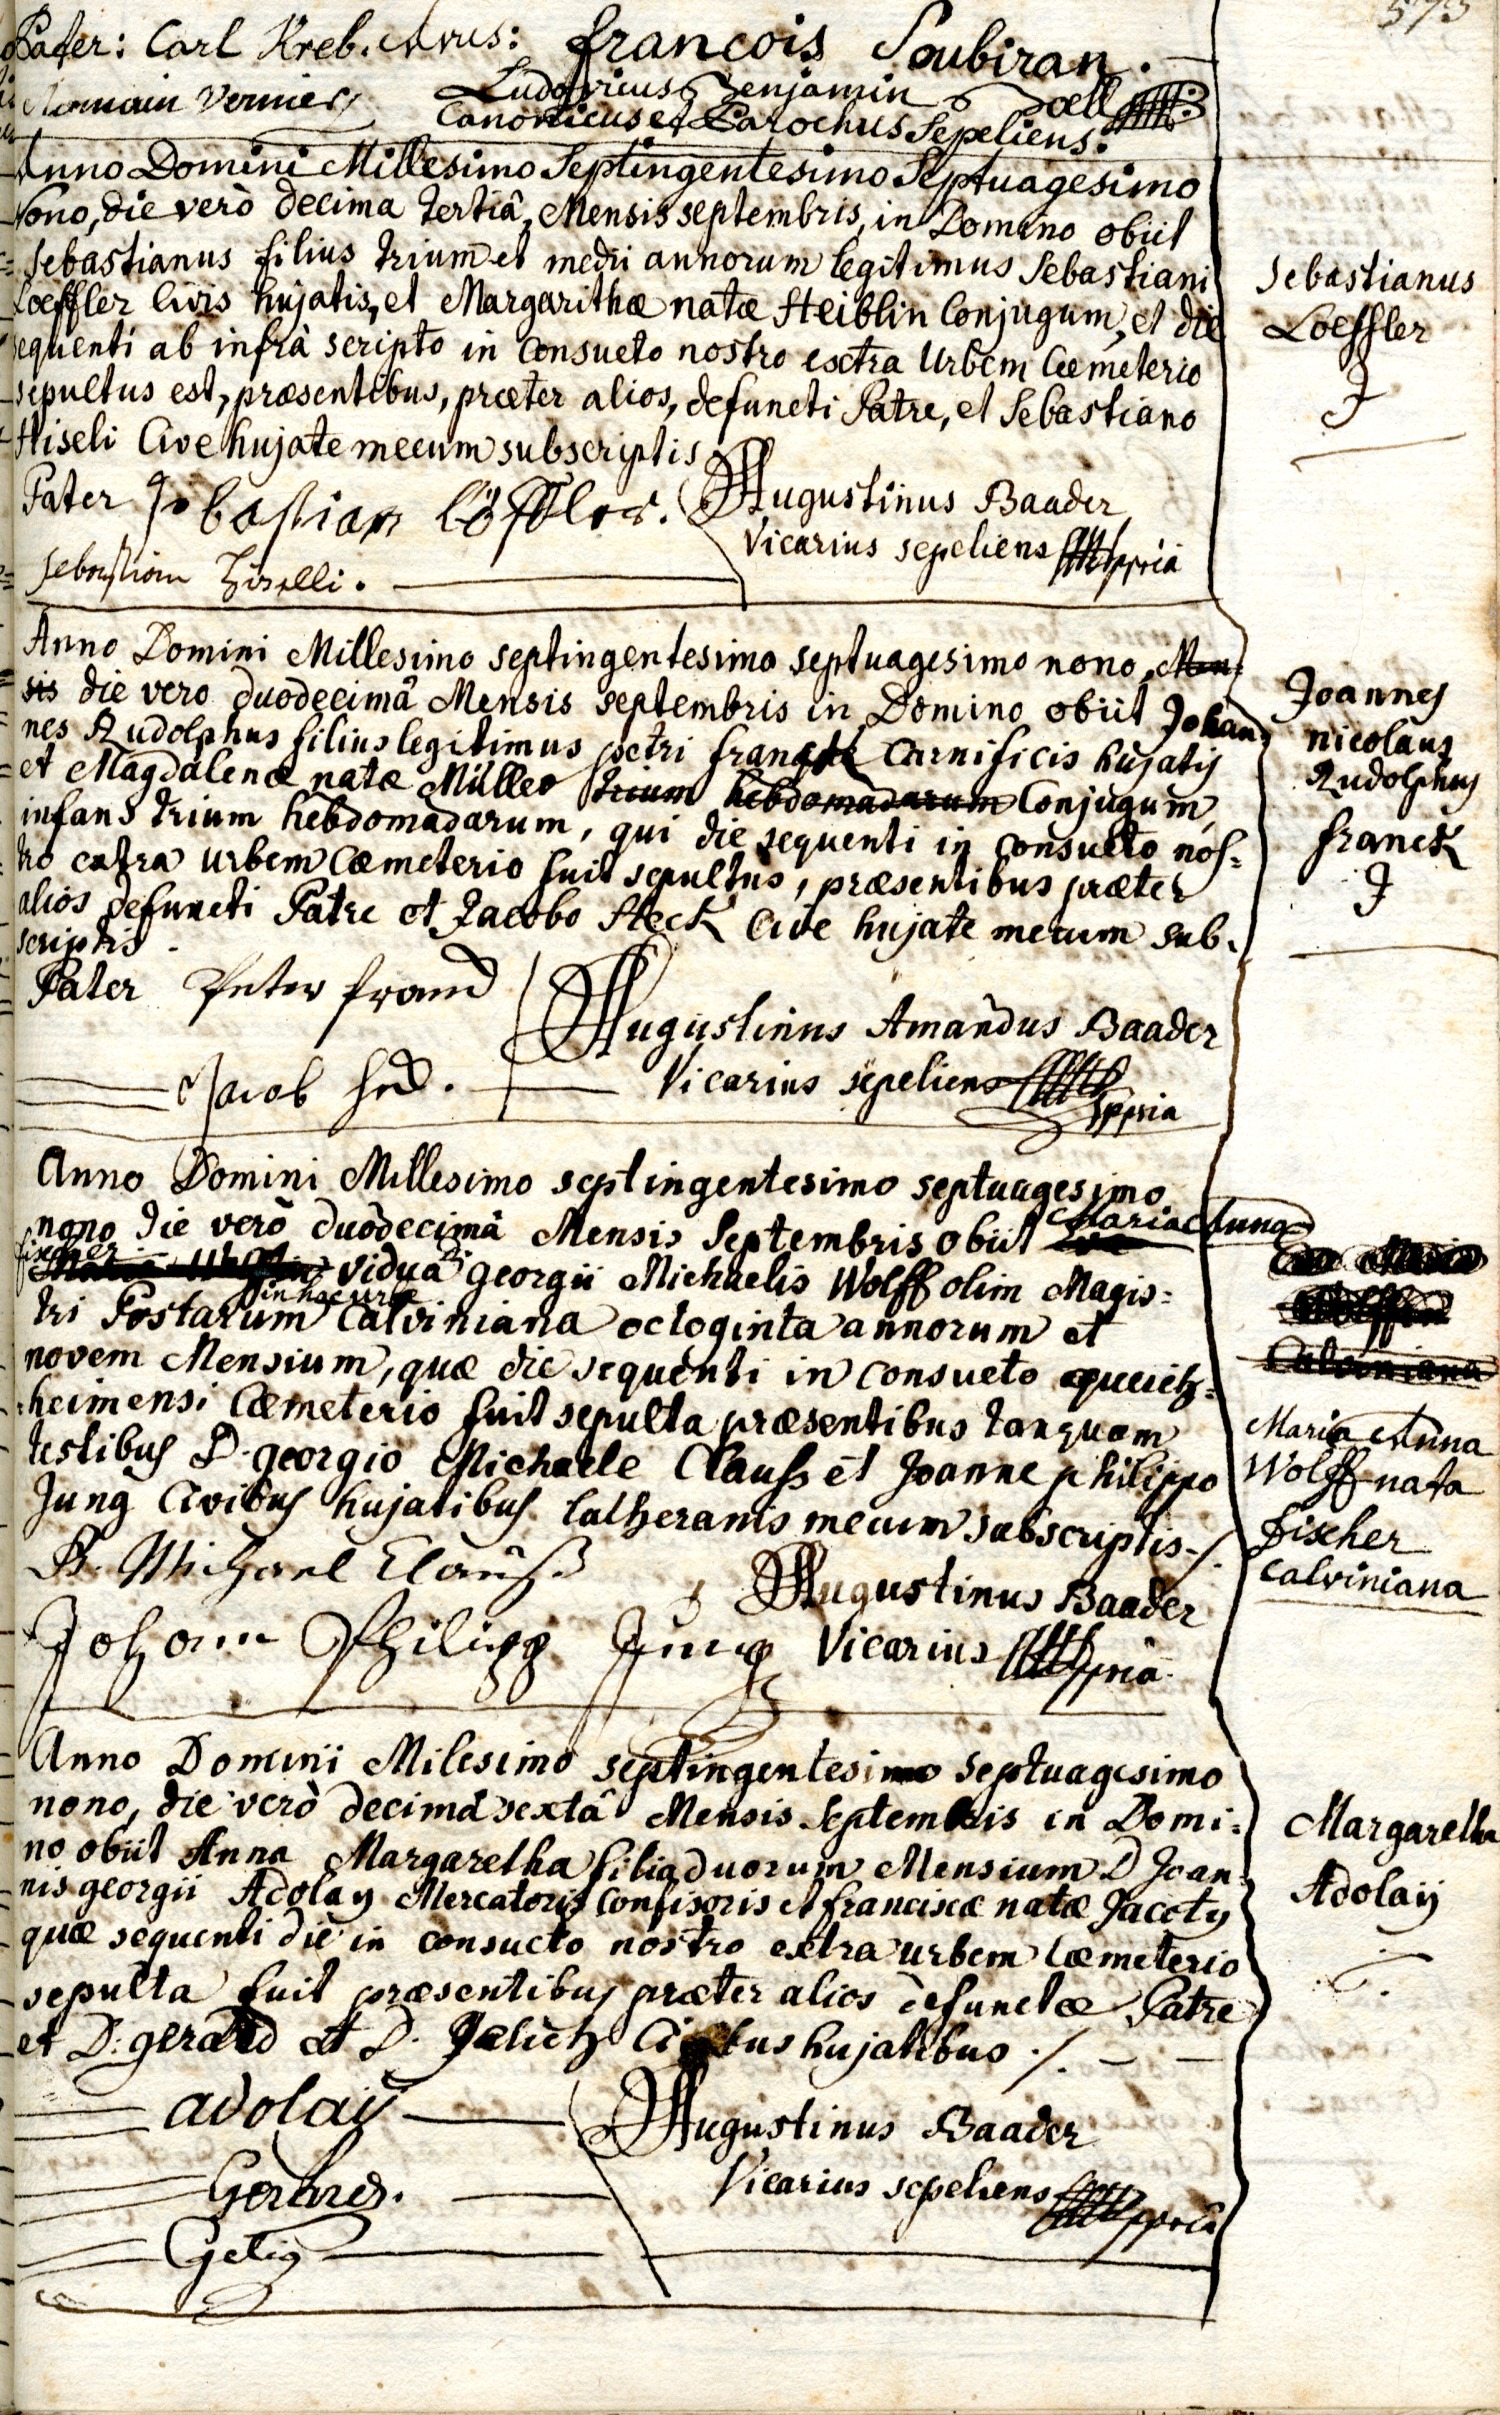 573
Pater: Carl Kreb. Avus: francois Soubiran.
Romain Vernier Ludovicus Benjamin Doell
Canonicus et Parochus Sepeliens.
Anno Domini Millesimo Septingentesimo Septuagesimo
Nono, die verò decima tertiâ, Mensis septembris, in Domino obiit
Sebastianus filius trium et medii annorum legitimus Sebastiani
Loeffler Civis hujatis, et Margarithæ natæ Heiblin Conjugum, et die
sequenti ab infrà scripto in consueto nostro extra Urbem Cæmeterio
sepultus est, præsentibus, præter alios, defuncti Patre, et Sebastiano
Hiseli Cive hujate mecum subscriptis
Sebastianus
Loeffler
J
Pater Sebastian Löffler. Augustinus Baader
Vicarius sepeliens mppria
Sebastian Hiselli.
Anno Domini Millesimo septingentesimo septuagesimo nono, Men-
sis die vero duodecimâ Mensis septembris in Domino obiit Johan
nes Rudolphus filius legitimus petri franck Carnificis hujatis
et Magdalenæ natæ Müller trium hebdomadarum Conjugum,
infans trium hebdomadarum, qui die sequenti in consueto nos=
tro extra urbem Cæmeterio fuit sepultus, præsentibus præter
alios defuncti Patre et Jacobo Heck Cive hujate mecum sub-
scriptis
Joannes
nicolaus
Rudolphus
franck
J
Pater Peter franck
Augustinus Amandus Baader
Jacob Heck. Vicarius sepeliens mppria
Anno Domini Millesimo septingentesimo septuagesimo
nono die verò duodecimâ Mensis Septembris obiit Eva Maria Anna
fischer vidua D: georgii Michaelis Wolff olim Magis=
tri Postarum in hac urbe Calviniana octoginta annorum et
novem Mensium, quæ die sequenti in consueto queich=
heimensi Cæmeterio fuit sepulta præsentibus tanquam
testibus D. georgio Michaele Clauss et Joanne philippo
Jung Civibus hujatibus lutheranis mecum subscriptis ./.
Calviniana
Maria Anna
Wolff nata
fischer
calviniana
G. Michael Clauß
Augustinus Baader
Johann Philipp Jung Vicarius mppria
Anno Domini Milesimo septingentesimo septuagesimo
nono, die verò decimâ sextâ Mensis Septembris in Domi=
no obiit Anna Margaretha filia duorum Mensium D Joan-
nis georgii Adolay Mercatoris Confisoris et franciscæ natæ Jacoty
quæ sequenti die in consueto nostro extra urbem Cæmeterio
sepulta fuit præsentibus præter alios defunctæ Patre
et D: gerard et D. Jelich Civibus hujatibus ./.
Margaretha
Adolaÿ
adolaÿ
Augustinus Baader
Vicarius sepeliens mppria